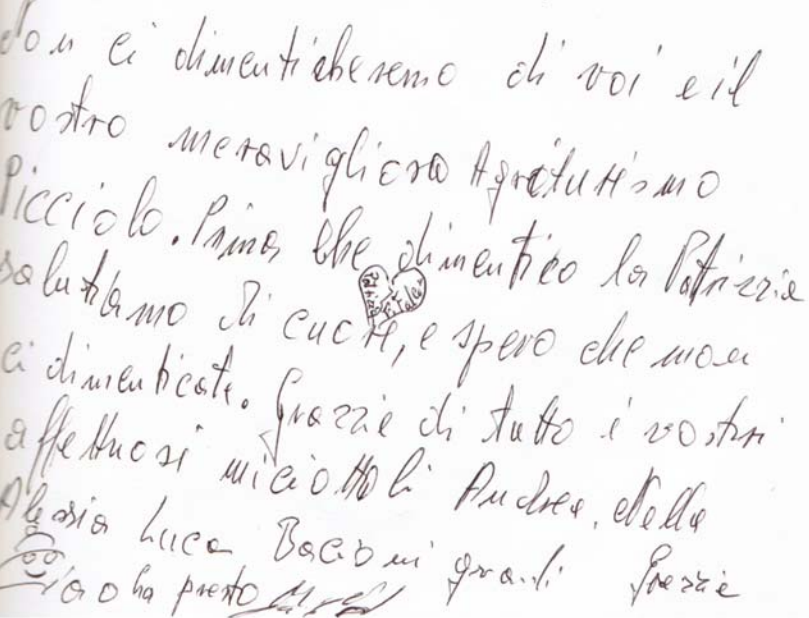 Non ci dimenticheremo di voi e il
vostro meraviglioso Agriturismo
Picciolo. Prima che dimentico la Patrizia
salutiamo di cuore, e spero che non
ci dimenticate. Grazzie di tutto i vostri
affettuosi miciottoli Andrea, Nella
Alessia Luca Bacioni grandi Grazzie
Ciao ha presto